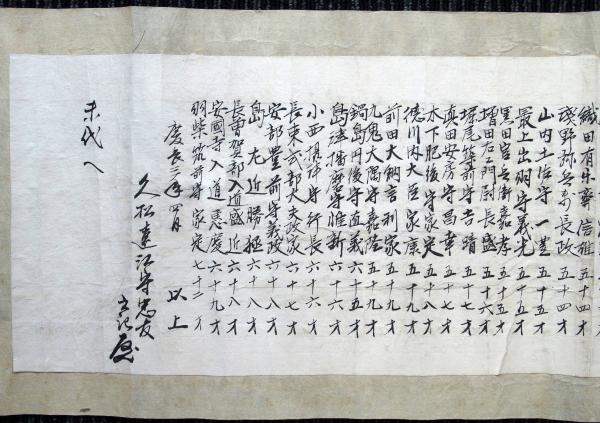 織田有楽齋信雄五十四才
浅野弥兵衛長政五十四才
山内土佐守一豊五十五才
最上出羽守義光五十五才
黒田官兵衛孝高五十五才
増田右エ門尉長盛五十六才
堀尾筑前守吉晴五十七才
真田安房守昌幸五十七才
木下肥後守家定五十八才
徳川内大臣家康五十九才
前田大納言利家五十九才
九鬼大隅守嘉隆五十九才
鍋島丹後守直義六十三才
島津播磨守惟新六十六才
小西摂津守行長六十六才
長束武部大夫政家六十七才
安部豊前守義政六十八才
島左近勝猛六十八才
長曽賀部入道盛近六十八才
安國寺入道恵瓊六十九才
羽柴筑前守家定七十二才
以上
慶長三年四月
久松遠江守忠友
末代へ